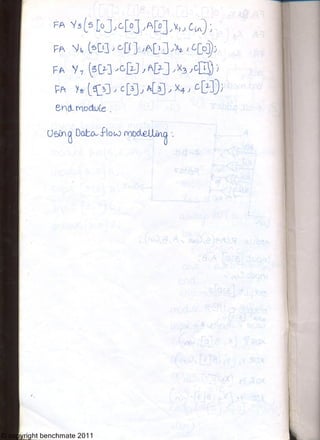 FA Y5 (S[0], C[0], A[0], X1, Cin);
FA Y6 (S[1], C[1], A[1], X2, C[0]);
FA Y7 (S[2], C[2], A[2], X3, C[1]);
FA Y8 (S[3], C[3], A[3], X4, C[2]);
end module.
Using Data flow modelling :
© copyright benchmate 2011